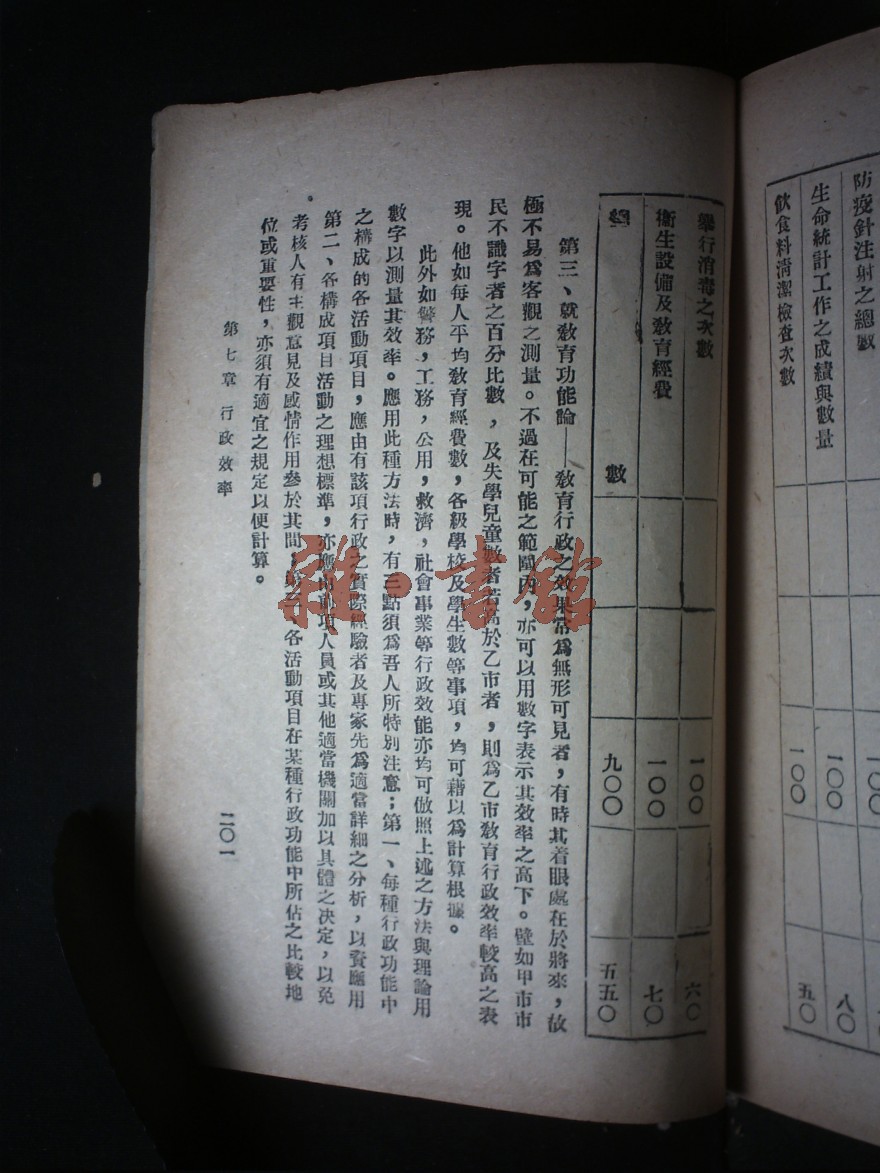 防疫針注射之總數 一〇〇
生命統計工作之成績與數量 一〇〇 八〇
飲食料清潔檢查次數 一〇〇 五〇
舉行消毒之次數 一〇〇 六〇
衛生設備及教育經費 一〇〇 七〇
總數 九〇〇 五五〇
第三、就教育功能論——教育行政之效果常爲無形可見者,有時其着眼處在於將來,故
極不易爲客觀之測量。不過在可能之範圍內,亦可以用數字表示其效率之高下。譬如甲市市
民不識字者之百分比數,及失學兒童數者若高於乙市者,則爲乙市教育行政效率較高之表
現。他如每人平均教育經費數,各級學校及學生數等事項,均可藉以爲計算根據。
此外如警務,工務,公用,救濟,社會事業等行政效能亦均可倣照上述之方法與理論用
數字以測量其效率。應用此種方法時,有三點須爲吾人所特別注意;第一、每種行政功能中
之構成的各活動項目,應由有該項行政之實際經驗者及專家先爲適當詳細之分析,以資應用
第二、各構成項目活動之理想標準,亦應由項人員或其他適當機關加以具體之決定,以免
考核人有主觀意見及感情作用參於其間。各活動項目在某種行政功能中所佔之比較地
位或重要性,亦須有適宜之規定以便計算。
第七章 行政效率
二〇一
雜·書館